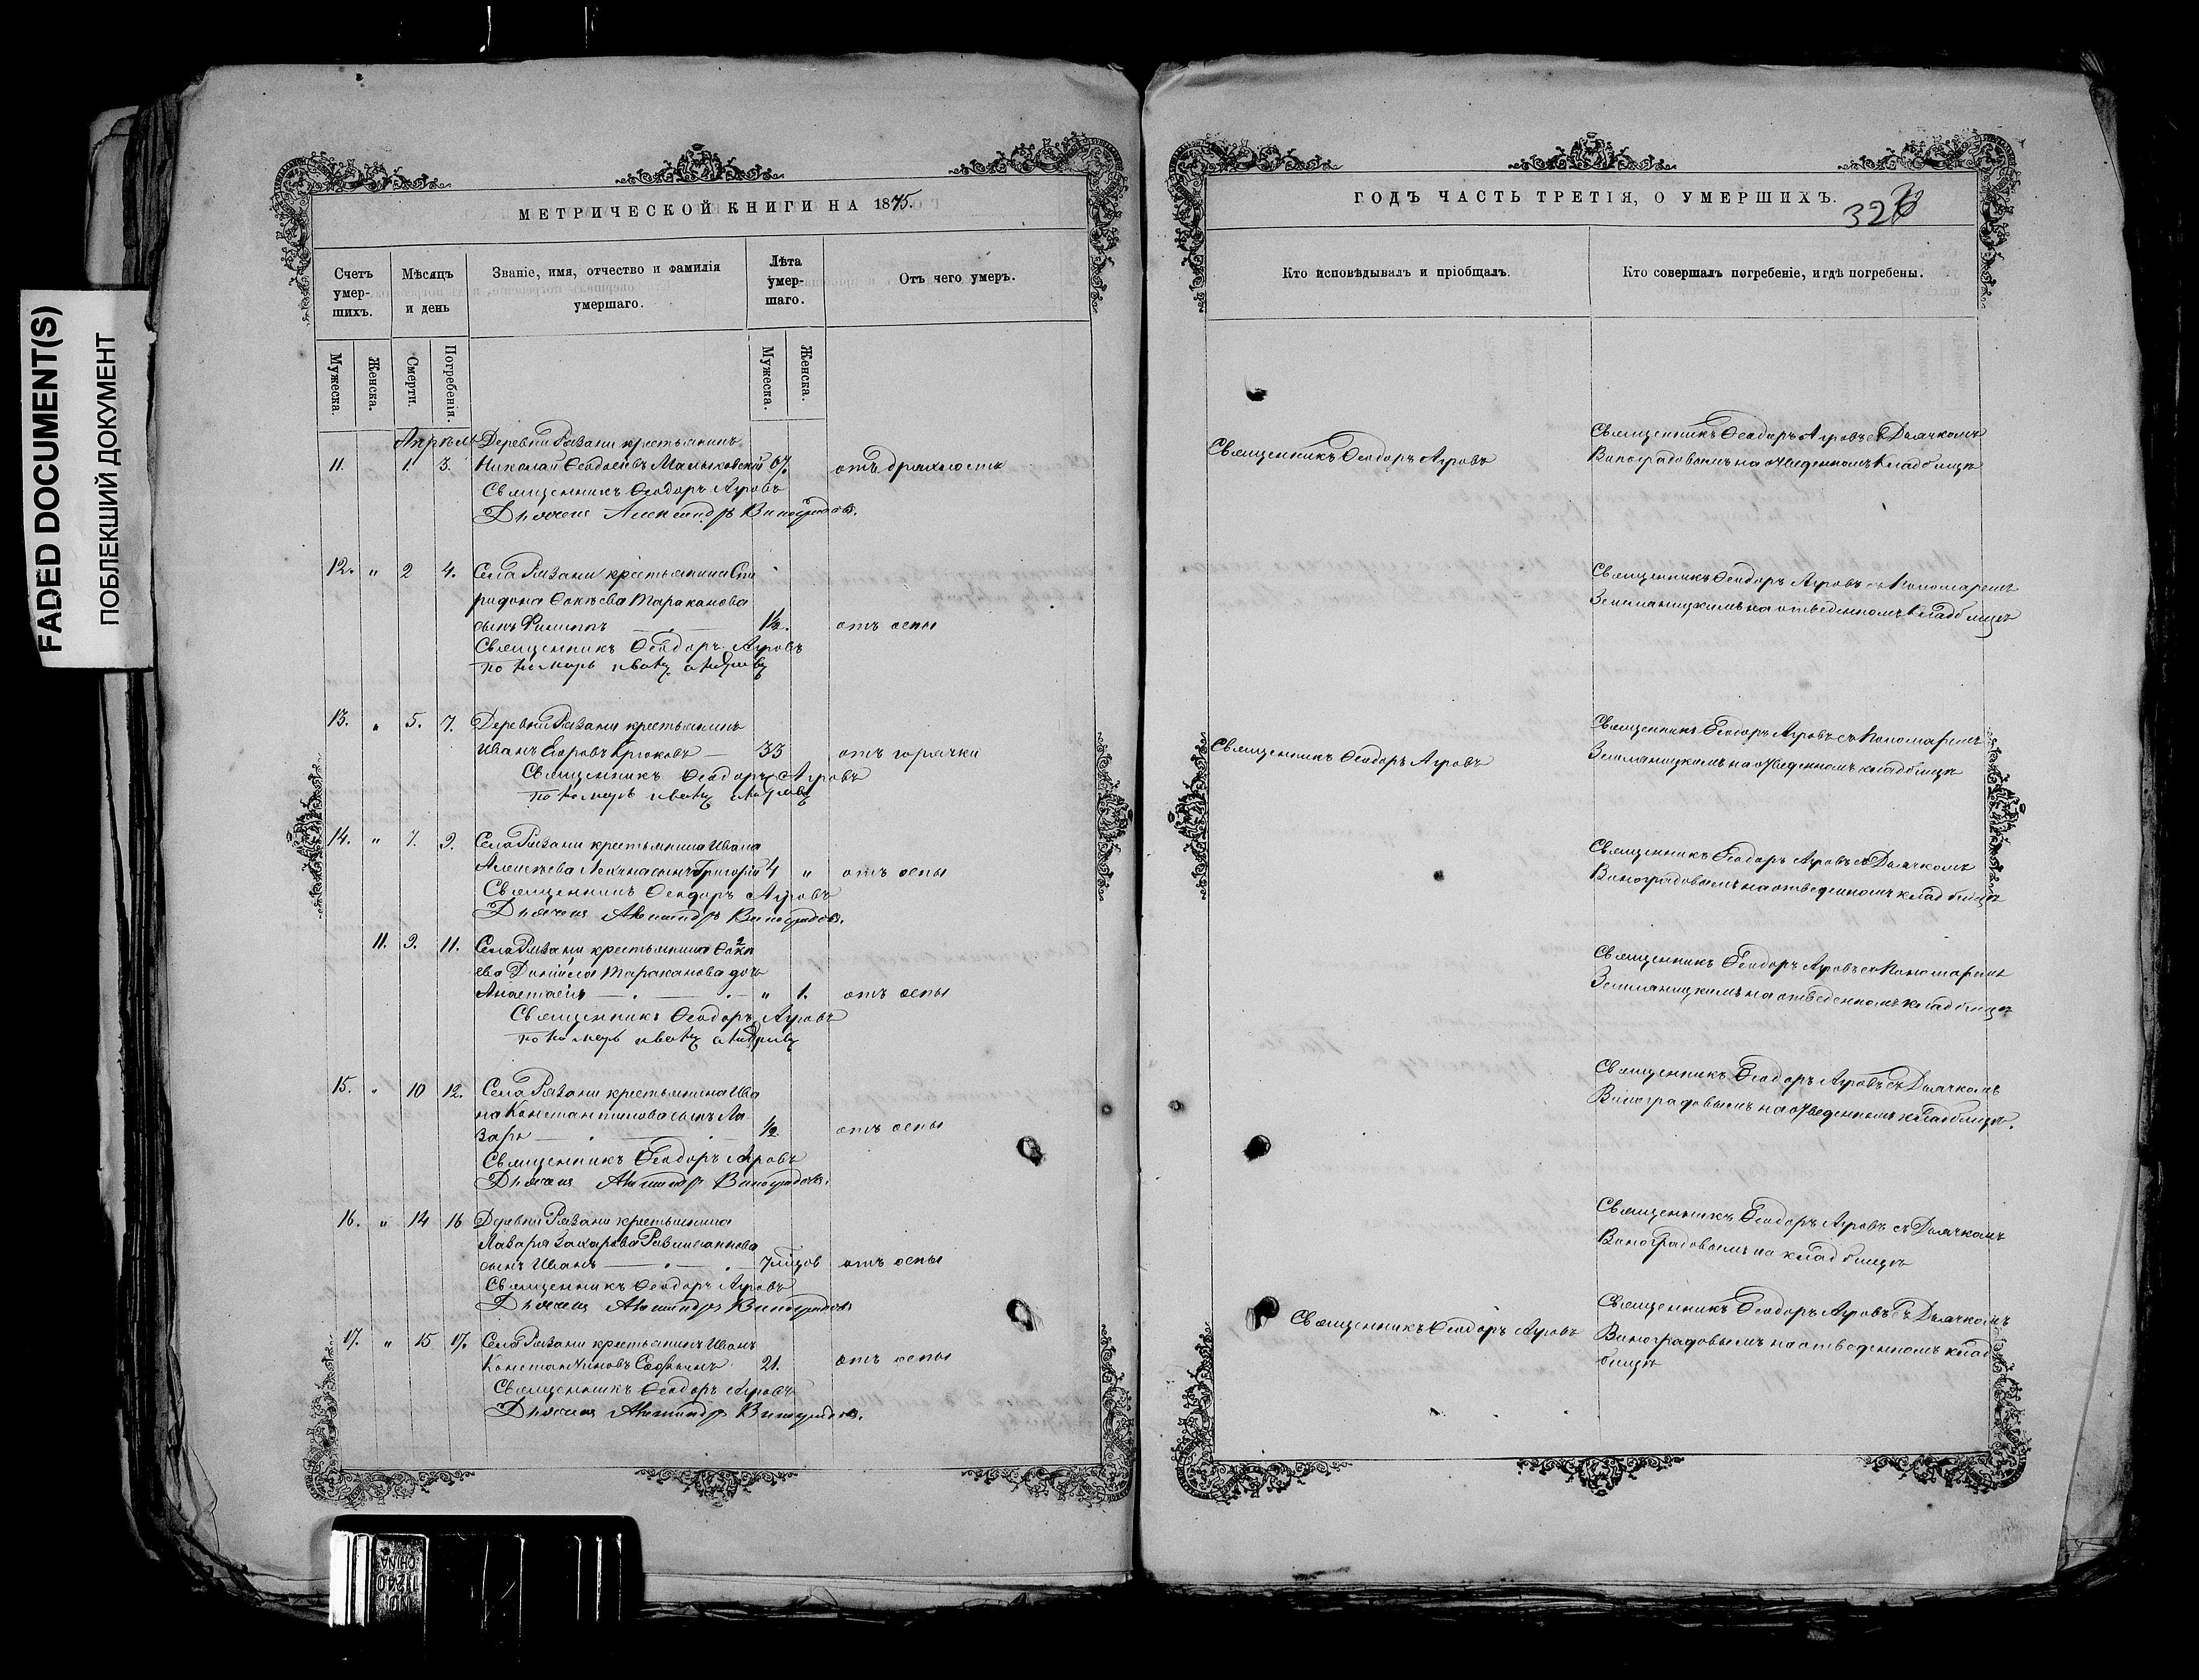 FADED DOCUMENT(S)
ПОБЛЕКШИЙ ДОКУМЕНТ
МЕТРИЧЕСКОЙ КНИГИ НА 1875.
Счетъ умер-шихъ.
Мѣсяцъ и день
Званіе, имя, отчество и фамилія умершаго.
Лѣта умер-шаго.
Отъ чего умеръ.
Мужеска.
Женска.
Смерти.
Погребенія.
Мужеска.
Женска.
Апрѣль Деревни Рязани крестьянинъ
11. 1. 3. Николай Ѳеодосіевъ 67. отъ дряхлости
Священникъ Ѳеодоръ Агровъ
Дьячекъ Александръ Виноградовъ.
12. „ 2 4. Села Рязани крестьянина Спи
ридона Тараканова
сынъ Филиппъ 1½. отъ оспы
Священникъ Ѳеодоръ Агровъ
13. „ 5. 7. Деревни Рязани крестьянинъ
Иванъ Крюковъ — 33 отъ горячки
Священникъ Ѳеодоръ Агровъ
14. „ 7. 9. Села Рязани крестьянина Ивана
Алексѣева сынъ Григорій 4 „ отъ оспы
Священникъ Ѳеодоръ Агровъ
Дьячекъ Александръ Виноградовъ.
11. 9. 11. Села Рязани крестьянина
Даніила Тараканова дочь
Анастасія — „ 1. отъ оспы
Священникъ Ѳеодоръ Агровъ
15. „ 10 12. Села Рязани крестьянина Ива
на Константинова сынъ Ла
зарь — ½ отъ оспы
Священникъ Ѳеодоръ Агровъ
Дьячекъ Александръ Виноградовъ.
16. „ 14 16 Деревни Рязани крестьянина
Лазаря Захарова
сынъ Иванъ — 7 отъ оспы
Священникъ Ѳеодоръ Агровъ
Дьячекъ Александръ Виноградовъ
17. „ 15 17. Села Рязани крестьянинъ Иванъ
Константиновъ 21. отъ оспы
Священникъ Ѳеодоръ Агровъ
Дьячекъ Александръ Виноградовъ.
ГОДЪ ЧАСТЬ ТРЕТІЯ, О УМЕРШИХЪ.
326
Кто исповѣдывалъ и пріобщалъ.
Кто совершалъ погребеніе, и гдѣ погребены.
Священникъ Ѳеодоръ Агровъ
Священникъ Ѳеодоръ Агровъ съ Дьячкомъ
Виноградовымъ на отведенномъ кладбищѣ
Священникъ Ѳеодоръ Агровъ съ Пономаремъ
Земляницкимъ на отведенномъ кладбищѣ
Священникъ Ѳеодоръ Агровъ
Священникъ Ѳеодоръ Агровъ съ Пономаремъ
Земляницкимъ на отведенномъ кладбищѣ
Священникъ Ѳеодоръ Агровъ съ Дьячкомъ
Виноградовымъ на отведенномъ кладбищѣ
Священникъ Ѳеодоръ Агровъ съ Пономаремъ
Земляницкимъ на отведенномъ кладбищѣ
Священникъ Ѳеодоръ Агровъ съ Дьячкомъ
Виноградовымъ на отведенномъ кладбищѣ.
Священникъ Ѳеодоръ Агровъ съ Дьячкомъ
Виноградовымъ на кладбищѣ
Священникъ Ѳеодоръ Агровъ
Священникъ Ѳеодоръ Агровъ съ Дьячкомъ
Виноградовымъ на отведенномъ клад
бищѣ
NO 11240
CHINA